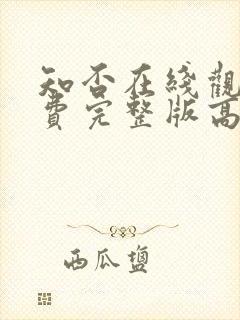 知否在线觀
費完整版高
西瓜鹽